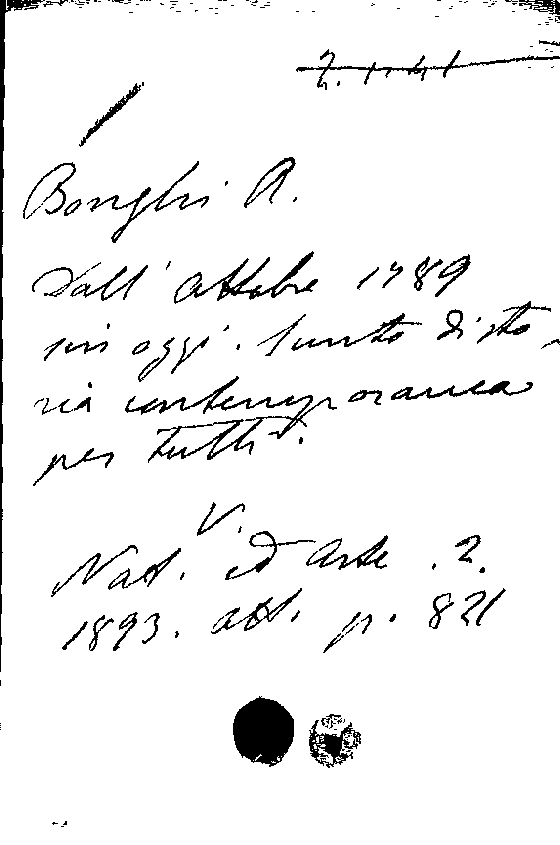 Z. 1. 41
Bonghi R.
Dall' ottobre 1789
sin oggi. Sunto di sto-
ria contemporanea
per tutti.
V.
Nat. ed Arte. 2.
1893. ott. p. 821